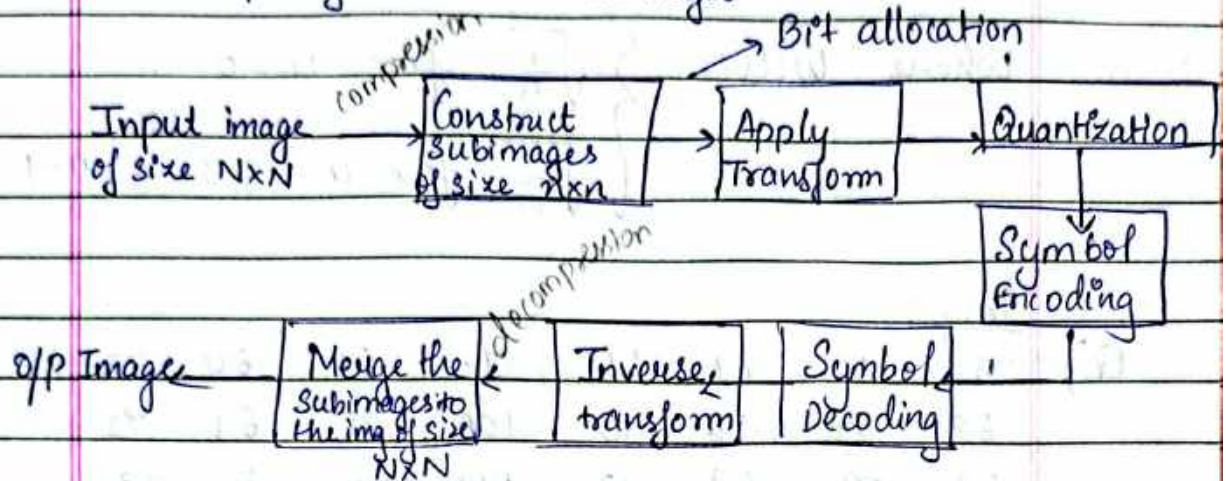 compression
Bit allocation
Input image
of size NxN
Construct
subimages
of size nxn
Apply
Transform
Quantization
Symbol
Encoding
decompression
O/P Image
Merge the
subimages to
the img of size
NxN
Inverse
transform
Symbol
Decoding